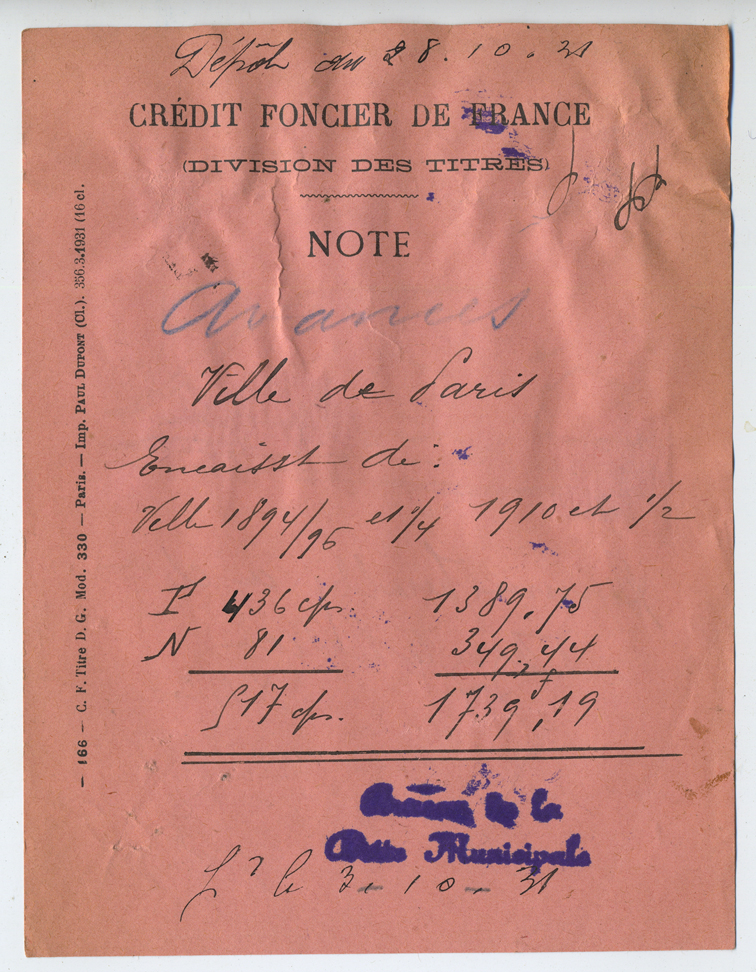 Dépôt du 28.10.31
CRÉDIT FONCIER DE FRANCE
(DIVISION DES TITRES)
NOTE
Avances
Ville de Paris
Encaisst de:
Ville 1894/96 et 1/4 1910 et 1/2
Pr 436 cps. 1389,75
N 81 349,44
517 cps. 1739f,19
de la
Dette Municipale
le 3-10-31
— 166 — C. F. Titre D. G. Mod. 330 — Paris. — Imp. PAUL DUPONT (Cl.). 356.3.1931 (16 cl.